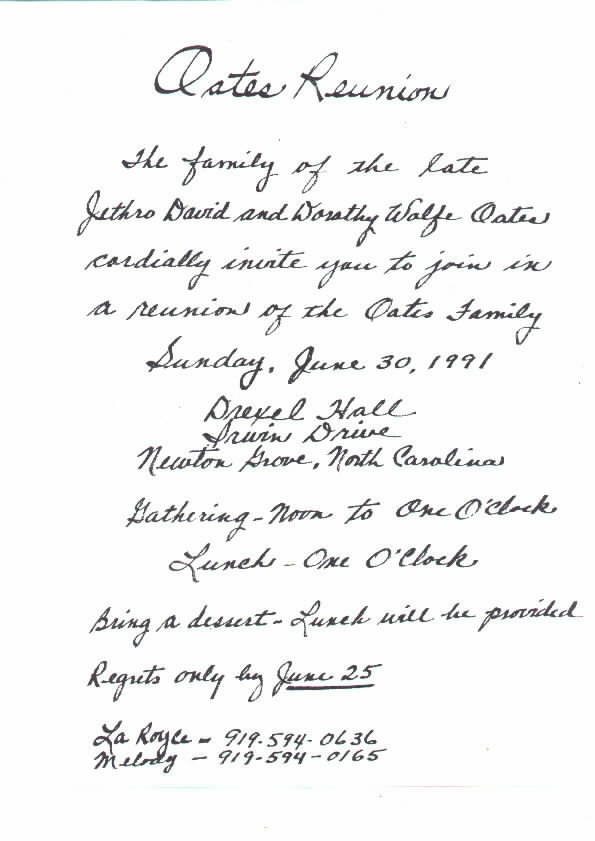 Oates Reunion
The family of the late
Jethro David and Dorothy Wolfe Oates
cordially invite you to join in
a reunion of the Oates Family
Sunday, June 30, 1991
Drexel Hall
Irwin Drive
Newton Grove, North Carolina
Gathering - Noon to One O'Clock
Lunch - One O'Clock
Bring a dessert - Lunch will be provided
Regrets only by June 25
La Royce - 919-594-0636
Melody - 919-594-0165